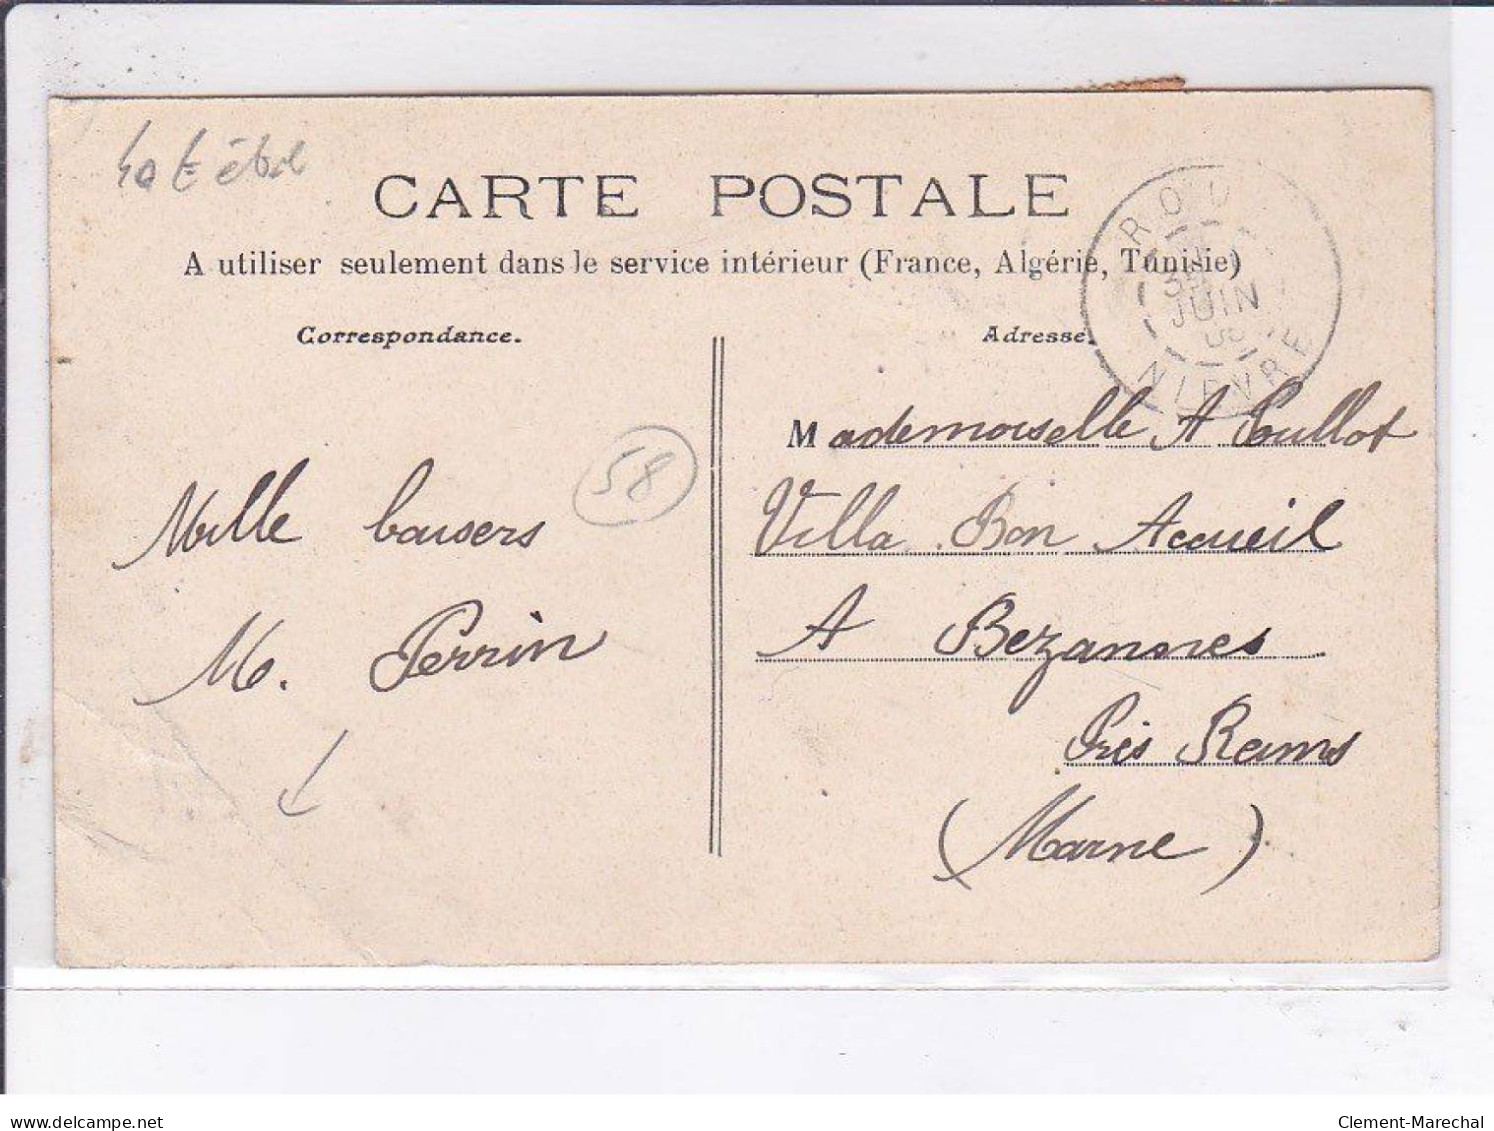 CARTE POSTALE
A utiliser seulement dans le service intérieur (France, Algérie, Tunisie)
Correspondance.
Adresse.
ROU
JUIN
NIEVRE
58
Mille baisers
M. Perrin
Mademoiselle A Poullot
Villa Bon Accueil
A Bezannes
Près Reims
(Marne)
delcampe.net
Clement-Marechal